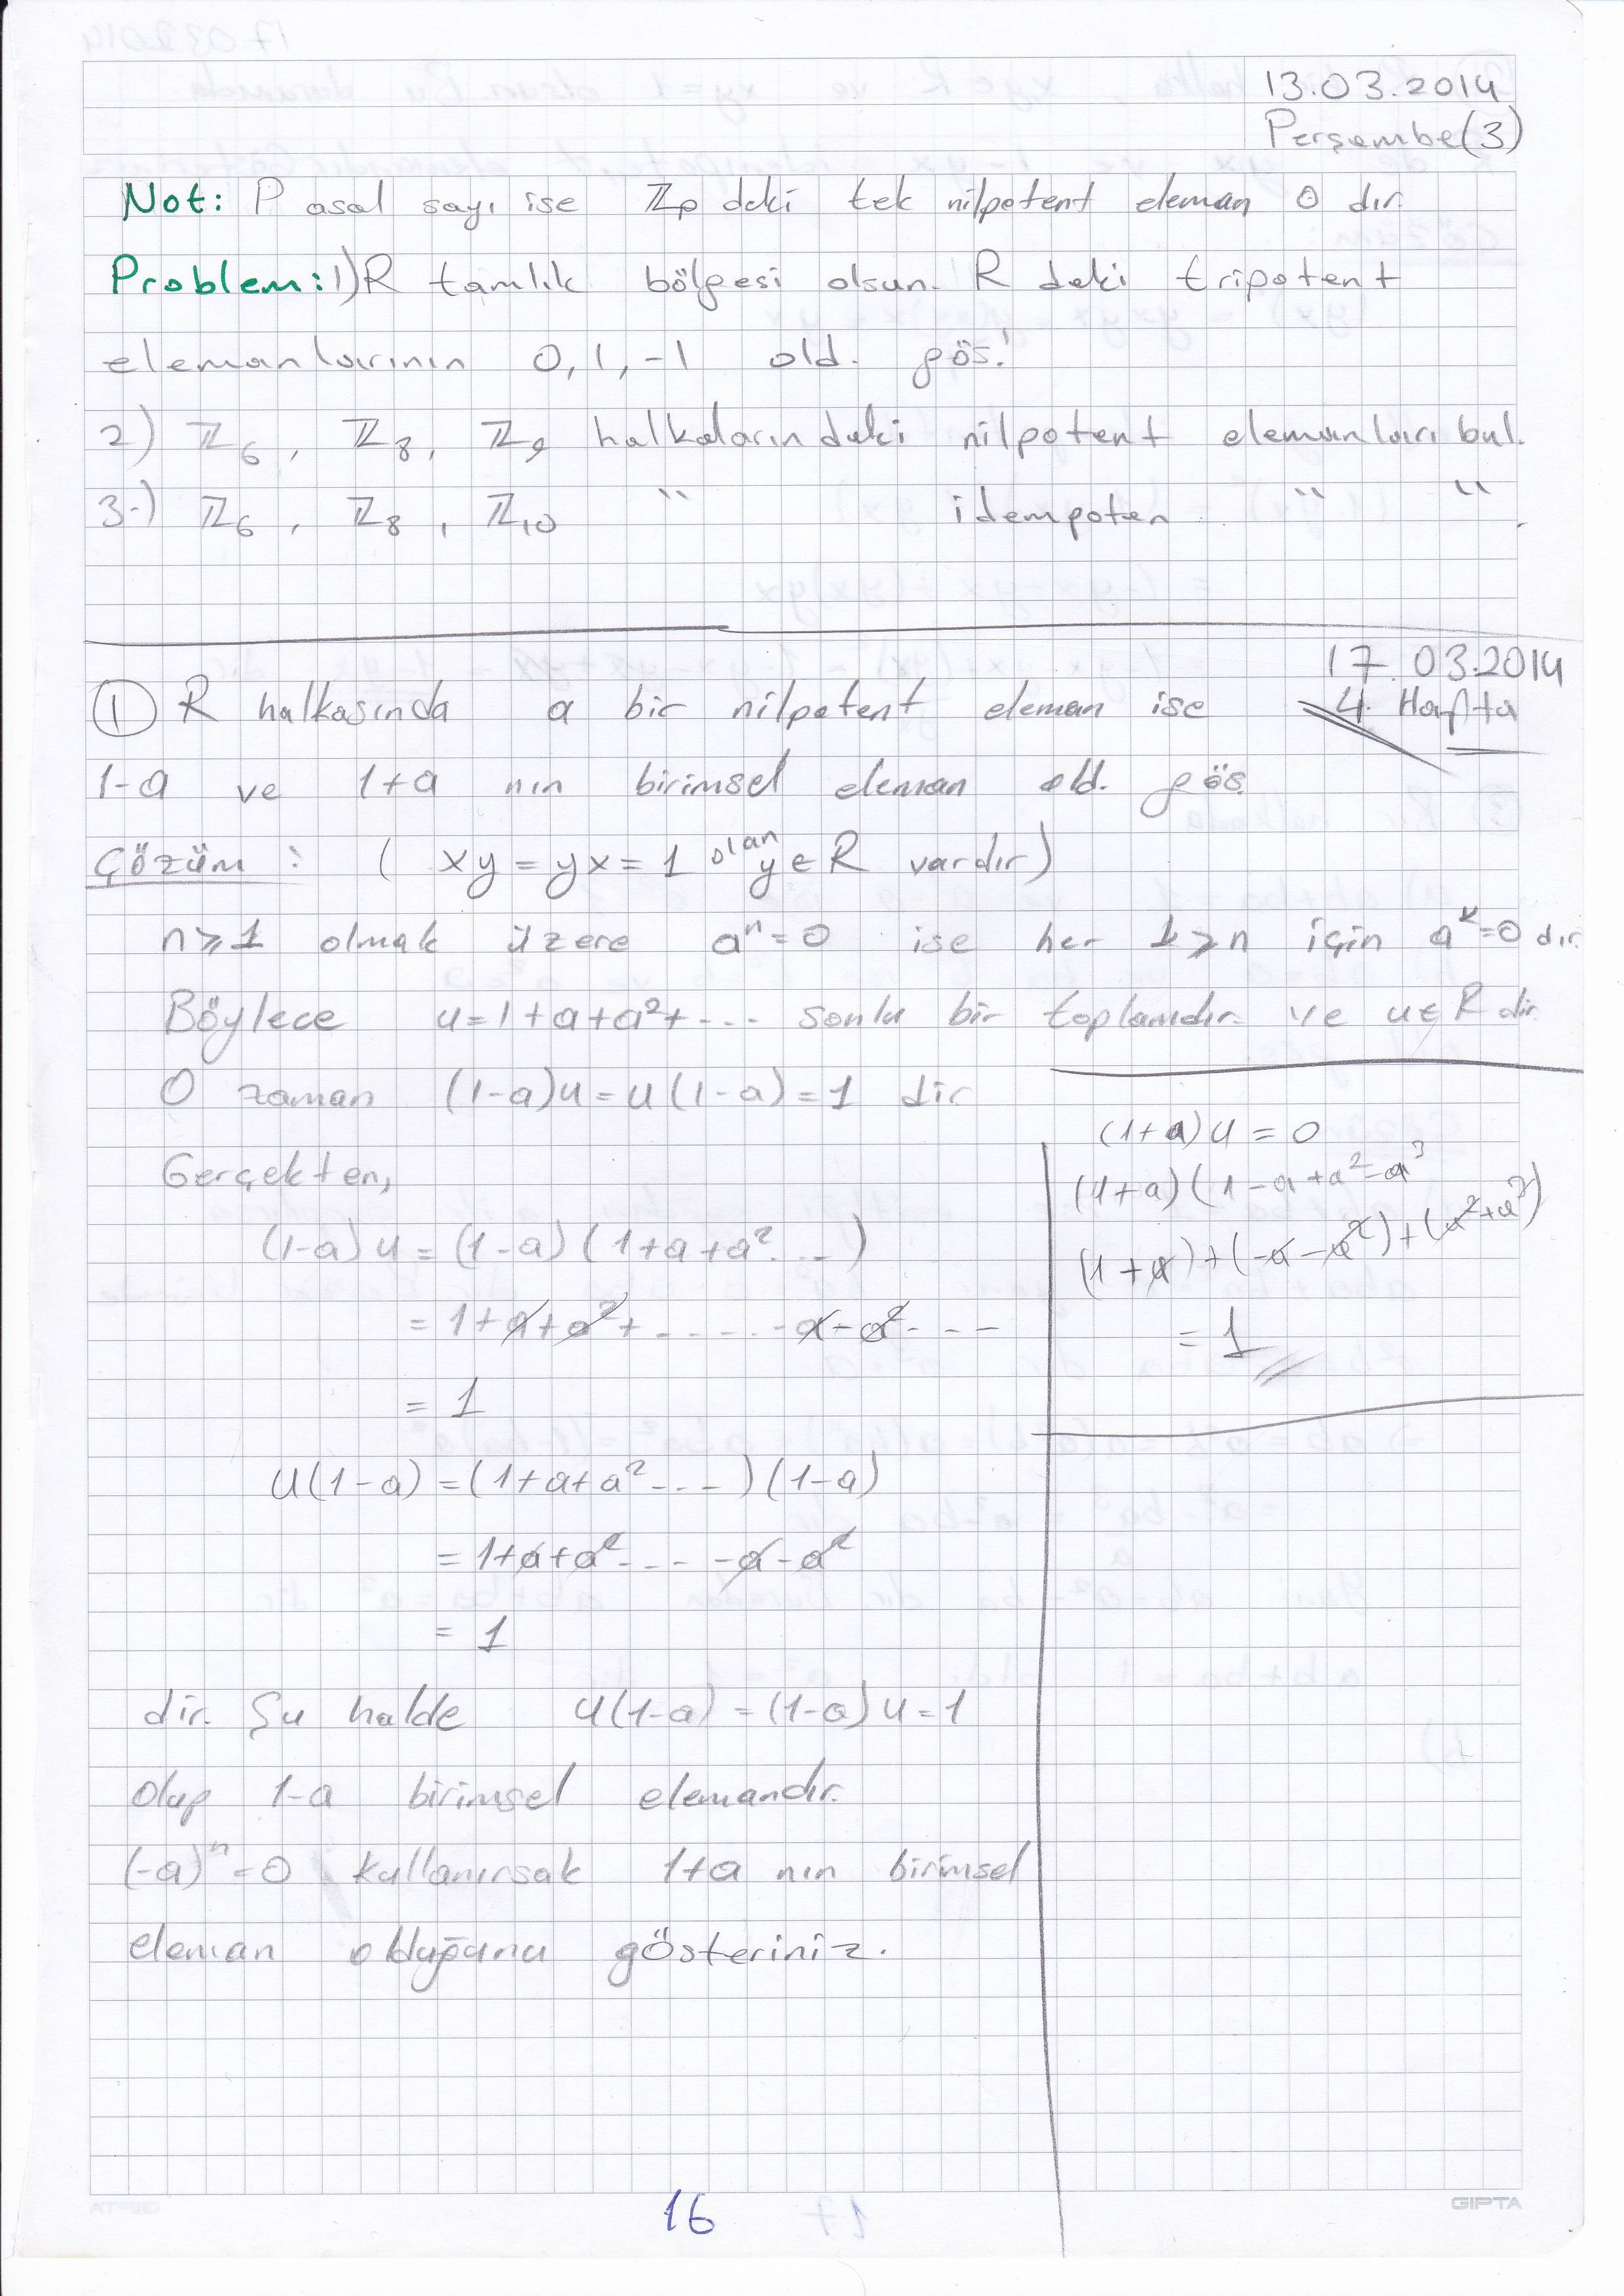 13.03.2014
Perşembe(3)
Not: P asal sayı ise ℤp deki tek nilpotent eleman 0 dır.
Problem:1) R tamlık bölgesi olsun. R deki tripotent
elemanlarının 0, 1, -1 old. gös!
2) ℤ6, ℤ8, ℤ9 halkalarındaki nilpotent elemanları bul.
3-) ℤ6, ℤ8, ℤ10 " idempoten " " .
17.03.2014
4. Hafta
① R halkasında a bir nilpotent eleman ise
1-a ve 1+a nın birimsel eleman old. gös.
Çözüm : ( xy = yx = 1 olan y∈R vardır)
n⩾1 olmak üzere aⁿ=0 ise her k⩾n için aᵏ=0 dır.
Böylece u=1+a+a²+... sonlu bir toplamdır. ve u∈R dir.
O zaman (1-a)u=u(1-a)=1 dir
Gerçekten,
(1-a)u=(1-a)(1+a+a²...)
= 1+a+a²+.....-a-a²...
= 1
u(1-a)=(1+a+a²...)(1-a)
= 1+a+a²....-a-a²
= 1
dir. Şu halde u(1-a)=(1-a)u=1
olup 1-a birimsel elemandır.
(-a)ⁿ=0 kullanırsak 1+a nın birimsel
eleman olduğunu gösteriniz.
(1+a)u=0
(1+a)(1-a+a²-a³
(1+a)+(-a-a²)+(a²+a³)
= 1
16
GIPTA